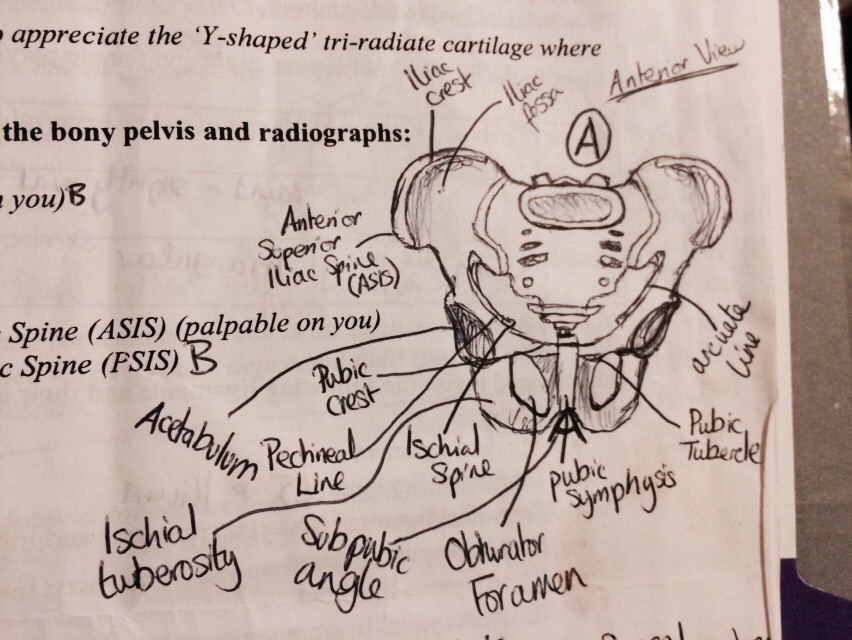 appreciate the 'Y-shaped' tri-radiate cartilage where
the bony pelvis and radiographs:
you) B
Spine (ASIS) (palpable on you)
c Spine (PSIS) B
Anterior View
A
Iliac
crest
Iliac
fossa
Anterior
Superior
Iliac Spine
(ASIS)
arcuate
line
Acetabulum
Pubic
Crest
Pechineal
Line
Ischial
Spine
Pubic
Tubercle
pubic
symphysis
Ischial
tuberosity
Sub pubic
angle
Obturator
Foramen